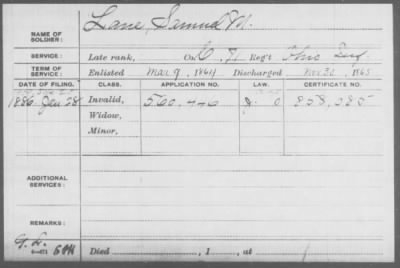 NAME OF SOLDIER: Lane, Samuel M.
SERVICE: Late rank, Co. Reg't Ohio Inf
TERM OF SERVICE: Enlisted Mar 9, 1864 Discharged Nov 30, 1865
DATE OF FILING. CLASS. APPLICATION NO. LAW. CERTIFICATE NO.
1886 Jan 28 Invalid, 560,446 858,285
Widow,
Minor,
ADDITIONAL SERVICES:
REMARKS:
Died , 1 , at